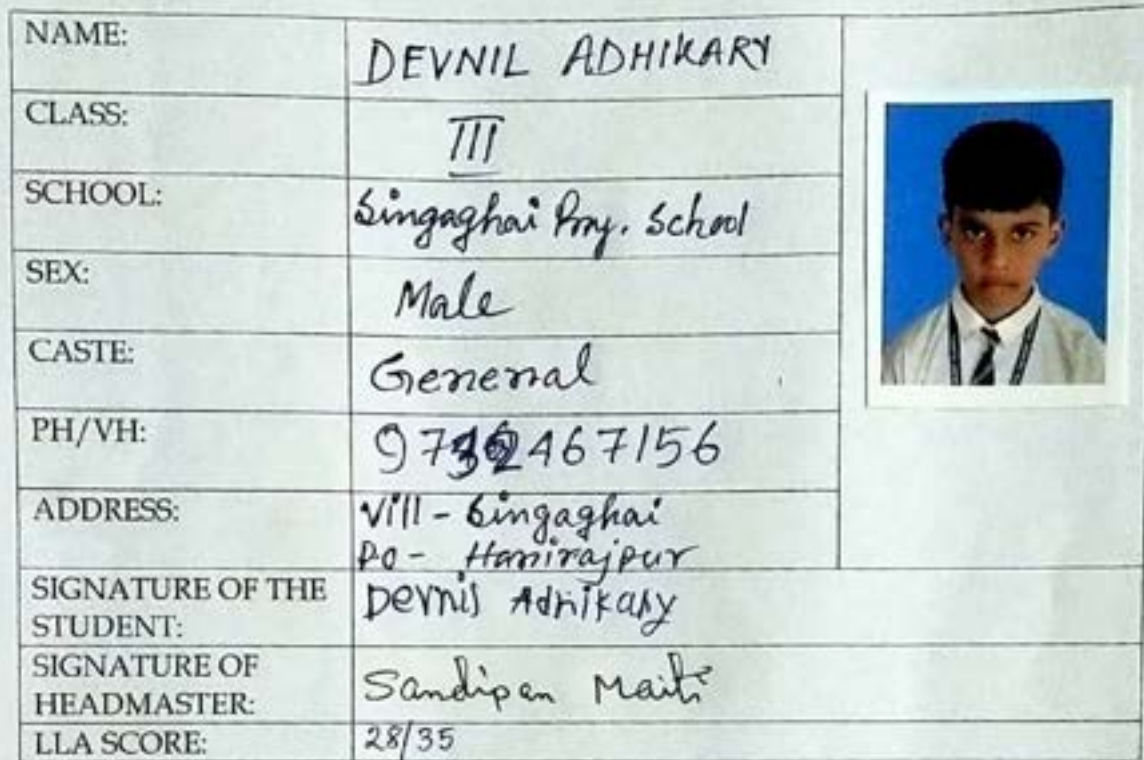 NAME: DEVNIL ADHIKARY
CLASS: III
SCHOOL: Singaghai Pry. School
SEX: Male
CASTE: General
PH/VH: 9732467156
ADDRESS: Vill - Singaghai
PO - Harirajpur
SIGNATURE OF THE
STUDENT: Devnil Adhikary
SIGNATURE OF
HEADMASTER: Sandipan Maiti
LLA SCORE: 28/35